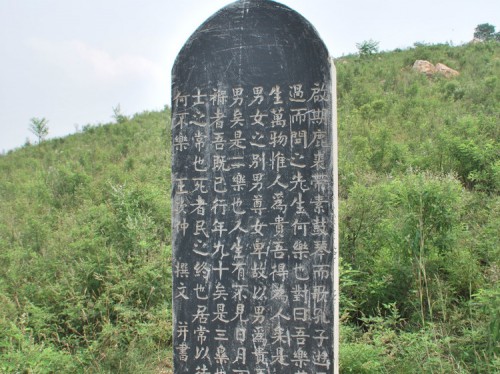 啟期鹿裘帶素鼓琴而歌孔子遊
過而問之先生何樂也對曰吾樂
生萬物惟人為貴吾得為人矣是
男女之别男尊女卑故以男為貴
男矣是二樂也人生有不見日月
褓者吾既已行年九十矣是三樂
士之常也死者民之終也居常以待
何不樂 王 仲 撰文 并書